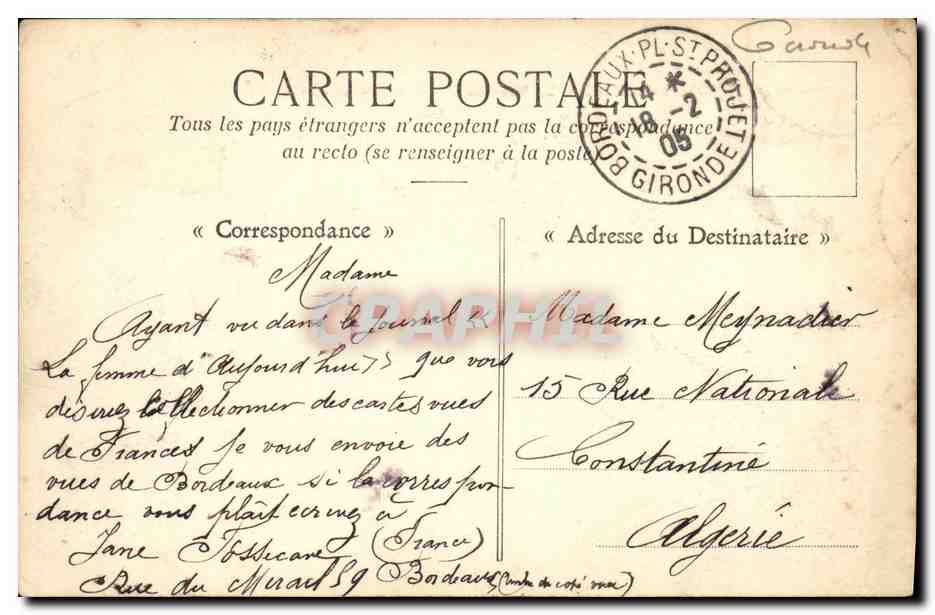 Gironde
CARTE POSTALE
Tous les pays étrangers n'acceptent pas la correspondance
au recto (se renseigner à la poste)
BORDEAUX-PL-ST PROJET
14 *
18 -2
05
GIRONDE
« Correspondance »
Madame
Ayant vu dans le journal <<
La femme d'Aujourd'hui >> que vous
désirez collectionner des cartes vues
de France je vous envoie des
vues de Bordeaux si la correspon-
dance vous plaît ecrivez à
Jane (France)
Rue du Mirail 59 Bordeaux (timbre du coté vue)
« Adresse du Destinataire »
Madame Meynadier
15 Rue Nationale
Constantine
Algérie
CPAPHIL